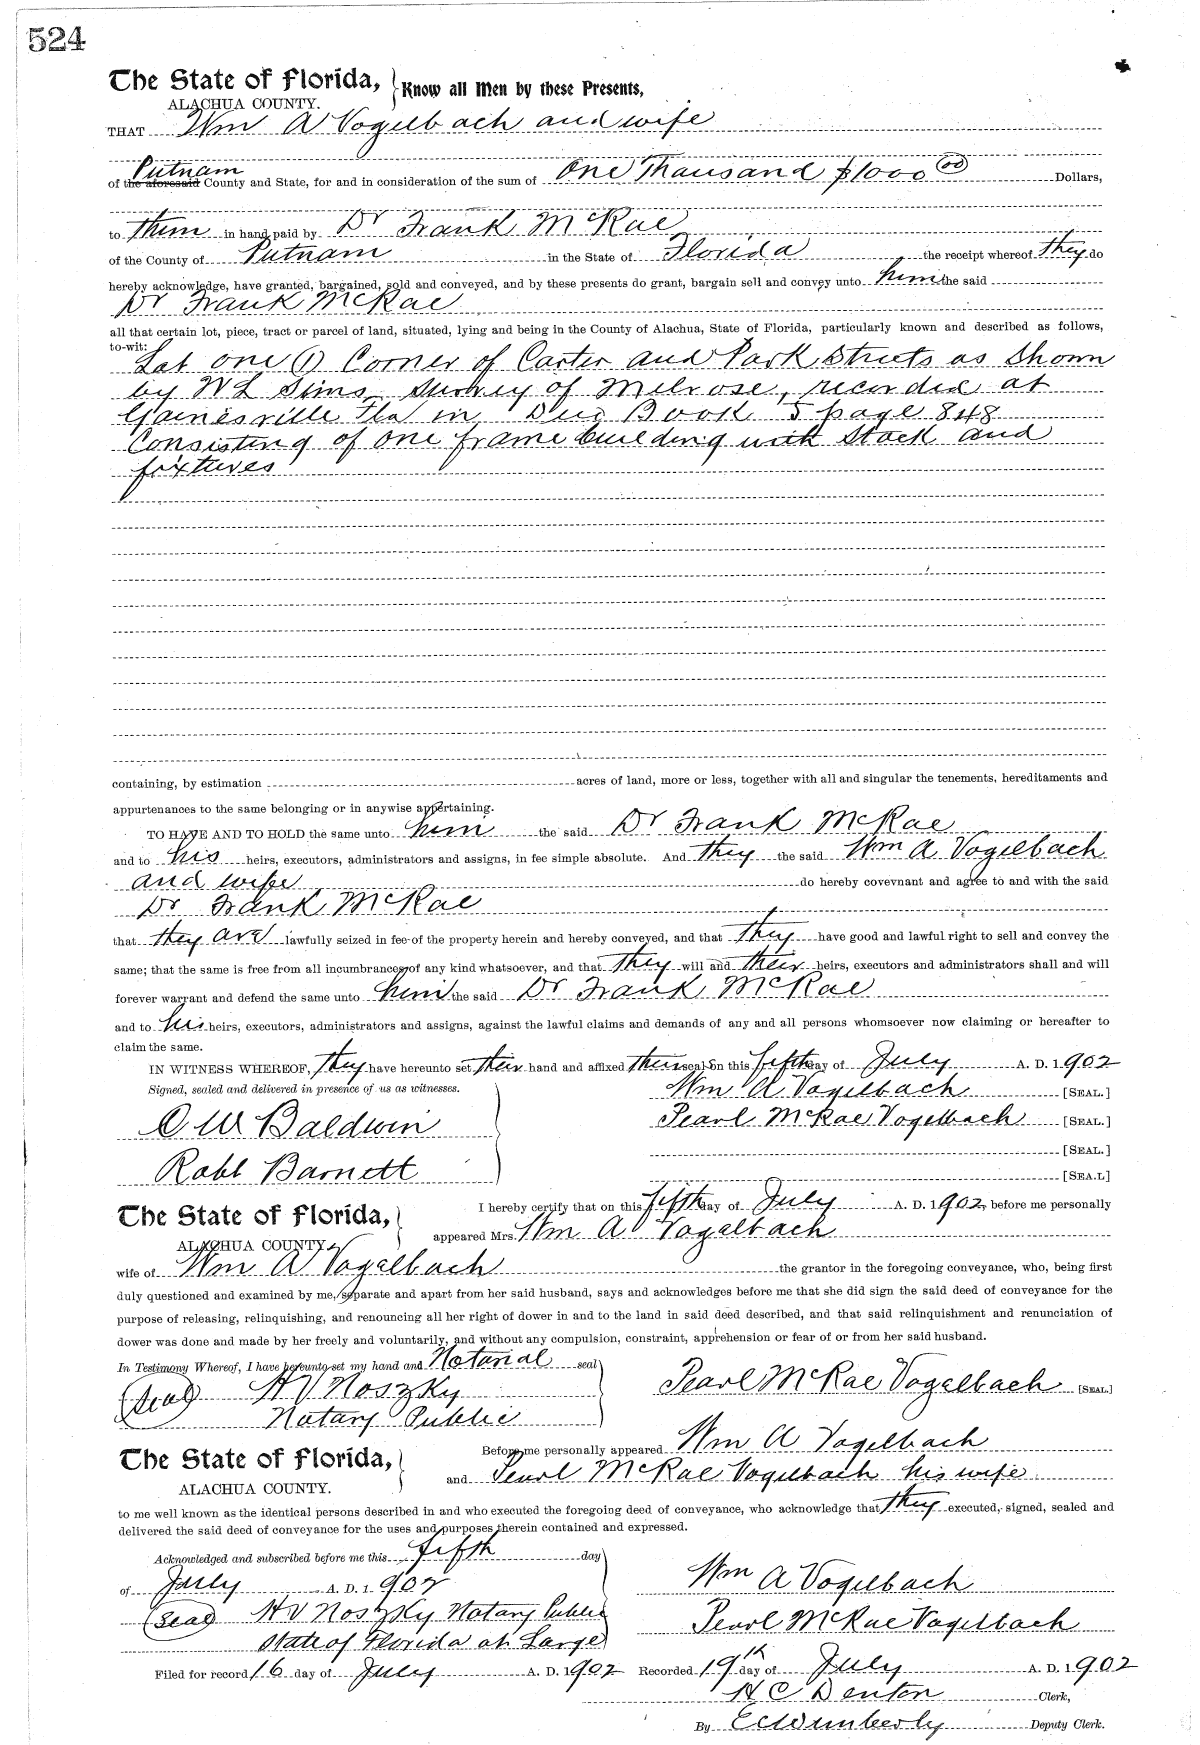 524
The State of Florida, Know all Men by these Presents,
ALACHUA COUNTY.
THAT Wm A Vogelbach and wife
Putnam
of the aforesaid County and State, for and in consideration of the sum of One Thousand $1000 00 Dollars,
to them in hand paid by Dr Frank McRae
of the County of Putnam in the State of Florida the receipt whereof they do
hereby acknowledge, have granted, bargained, sold and conveyed, and by these presents do grant, bargain sell and convey unto him the said
Dr Frank McRae
all that certain lot, piece, tract or parcel of land, situated, lying and being in the County of Alachua, State of Florida, particularly known and described as follows,
to-wit:
Lot one (1) Corner of Carter and Park Streets as Shown
by W L Sims survey of Melrose, recorded at
Gainesville Fla in Book page 848
Consisting of one frame building with Stock and
fixtures
containing, by estimation acres of land, more or less, together with all and singular the tenements, hereditaments and
appurtenances to the same belonging or in anywise appertaining.
TO HAVE AND TO HOLD the same unto him the said Dr Frank McRae
and to his heirs, executors, administrators and assigns, in fee simple absolute. And they the said Wm A Vogelbach
and wife do hereby covevnant and agree to and with the said
Dr Frank McRae
that they are lawfully seized in fee of the property herein and hereby conveyed, and that they have good and lawful right to sell and convey the
same; that the same is free from all incumbrances of any kind whatsoever, and that they will and their heirs, executors and administrators shall and will
forever warrant and defend the same unto him the said Dr Frank McRae
and to his heirs, executors, administrators and assigns, against the lawful claims and demands of any and all persons whomsoever now claiming or hereafter to
claim the same.
IN WITNESS WHEREOF, they have hereunto set their hand and affixed their seals on this fifth day of July A. D. 1902
Signed, sealed and delivered in presence of us as witnesses. Wm A Vogelbach [SEAL.]
O W Baldwin Pearl McRae Vogelbach [SEAL.]
[SEAL.]
Robt Barnett [SEA.L]
I hereby certify that on this fifth day of July A. D. 1902, before me personally
The State of Florida,
appeared Mrs. Wm A Vogelbach
ALACHUA COUNTY.
wife of Wm A Vogelbach the grantor in the foregoing conveyance, who, being first
duly questioned and examined by me, separate and apart from her said husband, says and acknowledges before me that she did sign the said deed of conveyance for the
purpose of releasing, relinquishing, and renouncing all her right of dower in and to the land in said deed described, and that said relinquishment and renunciation of
dower was done and made by her freely and voluntarily, and without any compulsion, constraint, apprehension or fear of or from her said husband.
In Testimony Whereof, I have hereunto set my hand and Notarial seal
(Seal) H V Noszky Pearl McRae Vogelbach [SEAL.]
Notary Public
The State of Florida, Before me personally appeared Wm A Vogelbach
and Pearl McRae Vogelbach his wife
ALACHUA COUNTY.
to me well known as the identical persons described in and who executed the foregoing deed of conveyance, who acknowledge that they executed, signed, sealed and
delivered the said deed of conveyance for the uses and purposes therein contained and expressed.
Acknowledged and subscribed before me this fifth day
of July A. D. 1902 Wm A Vogelbach
(Seal) H V Noszky Notary Public Pearl McRae Vogelbach
State of Florida at Large
Filed for record 16 day of July A. D. 1902 Recorded 19th day of July A. D. 1902
H C Denton Clerk,
By E C Wimberly Deputy Clerk.